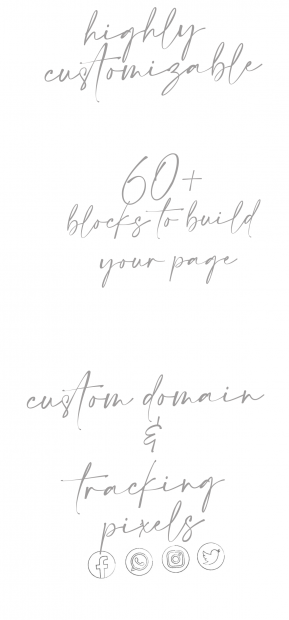 highly
customizable
60+
blocks to build
your page
custom domain
&
tracking
pixels